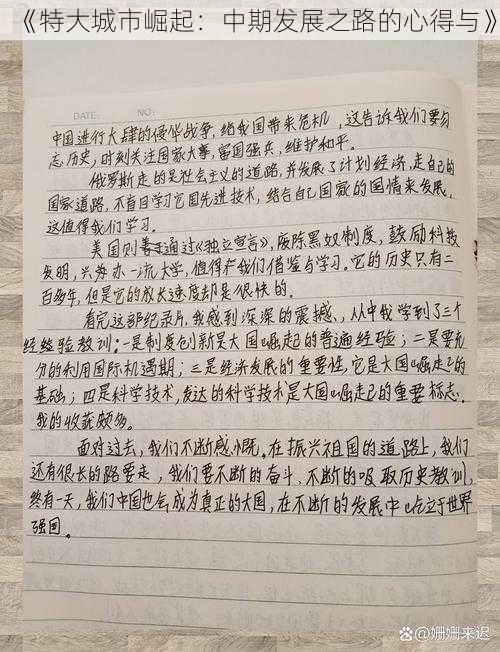 《特大城市崛起：中期发展之路的心得与》
DATE: NO:
中国进行大肆的侵华战争，给我国带来危机，这告诉我们要勿
忘历史，时刻关注国家大事，富国强兵，维护和平。
俄罗斯走的是社会主义的道路，并发展了计划经济，走自己的
国家道路，不盲目学习它国先进技术，结合自己国家的国情来发展，
这值得我们学习。
美国则通过《独立宣言》，废除黑奴制度，鼓励科技
发明，兴办一流大学，值得我们借鉴与学习。它的历史只有二
百多年，但是它的成长速度却是很快的。
看完这部纪录片，我感到深深的震撼、，从中我学到了三个
经验教训：一是制度创新是大国崛起的普遍经验；二是要充
分的利用国际机遇期；三是经济发展的重要性，它是大国崛起的
基础；四是科学技术，发达的科学技术是大国崛起的重要标志。
我的收获颇多。
面对过去，我们不断感慨。在振兴祖国的道路上，我们
还有很长的路要走，我们要不断的奋斗、不断的吸取历史教训，
终有一天，我们中国也会成为真正的大国，在不断的发展中屹立于世界
强国。
百家号@姗姗来迟